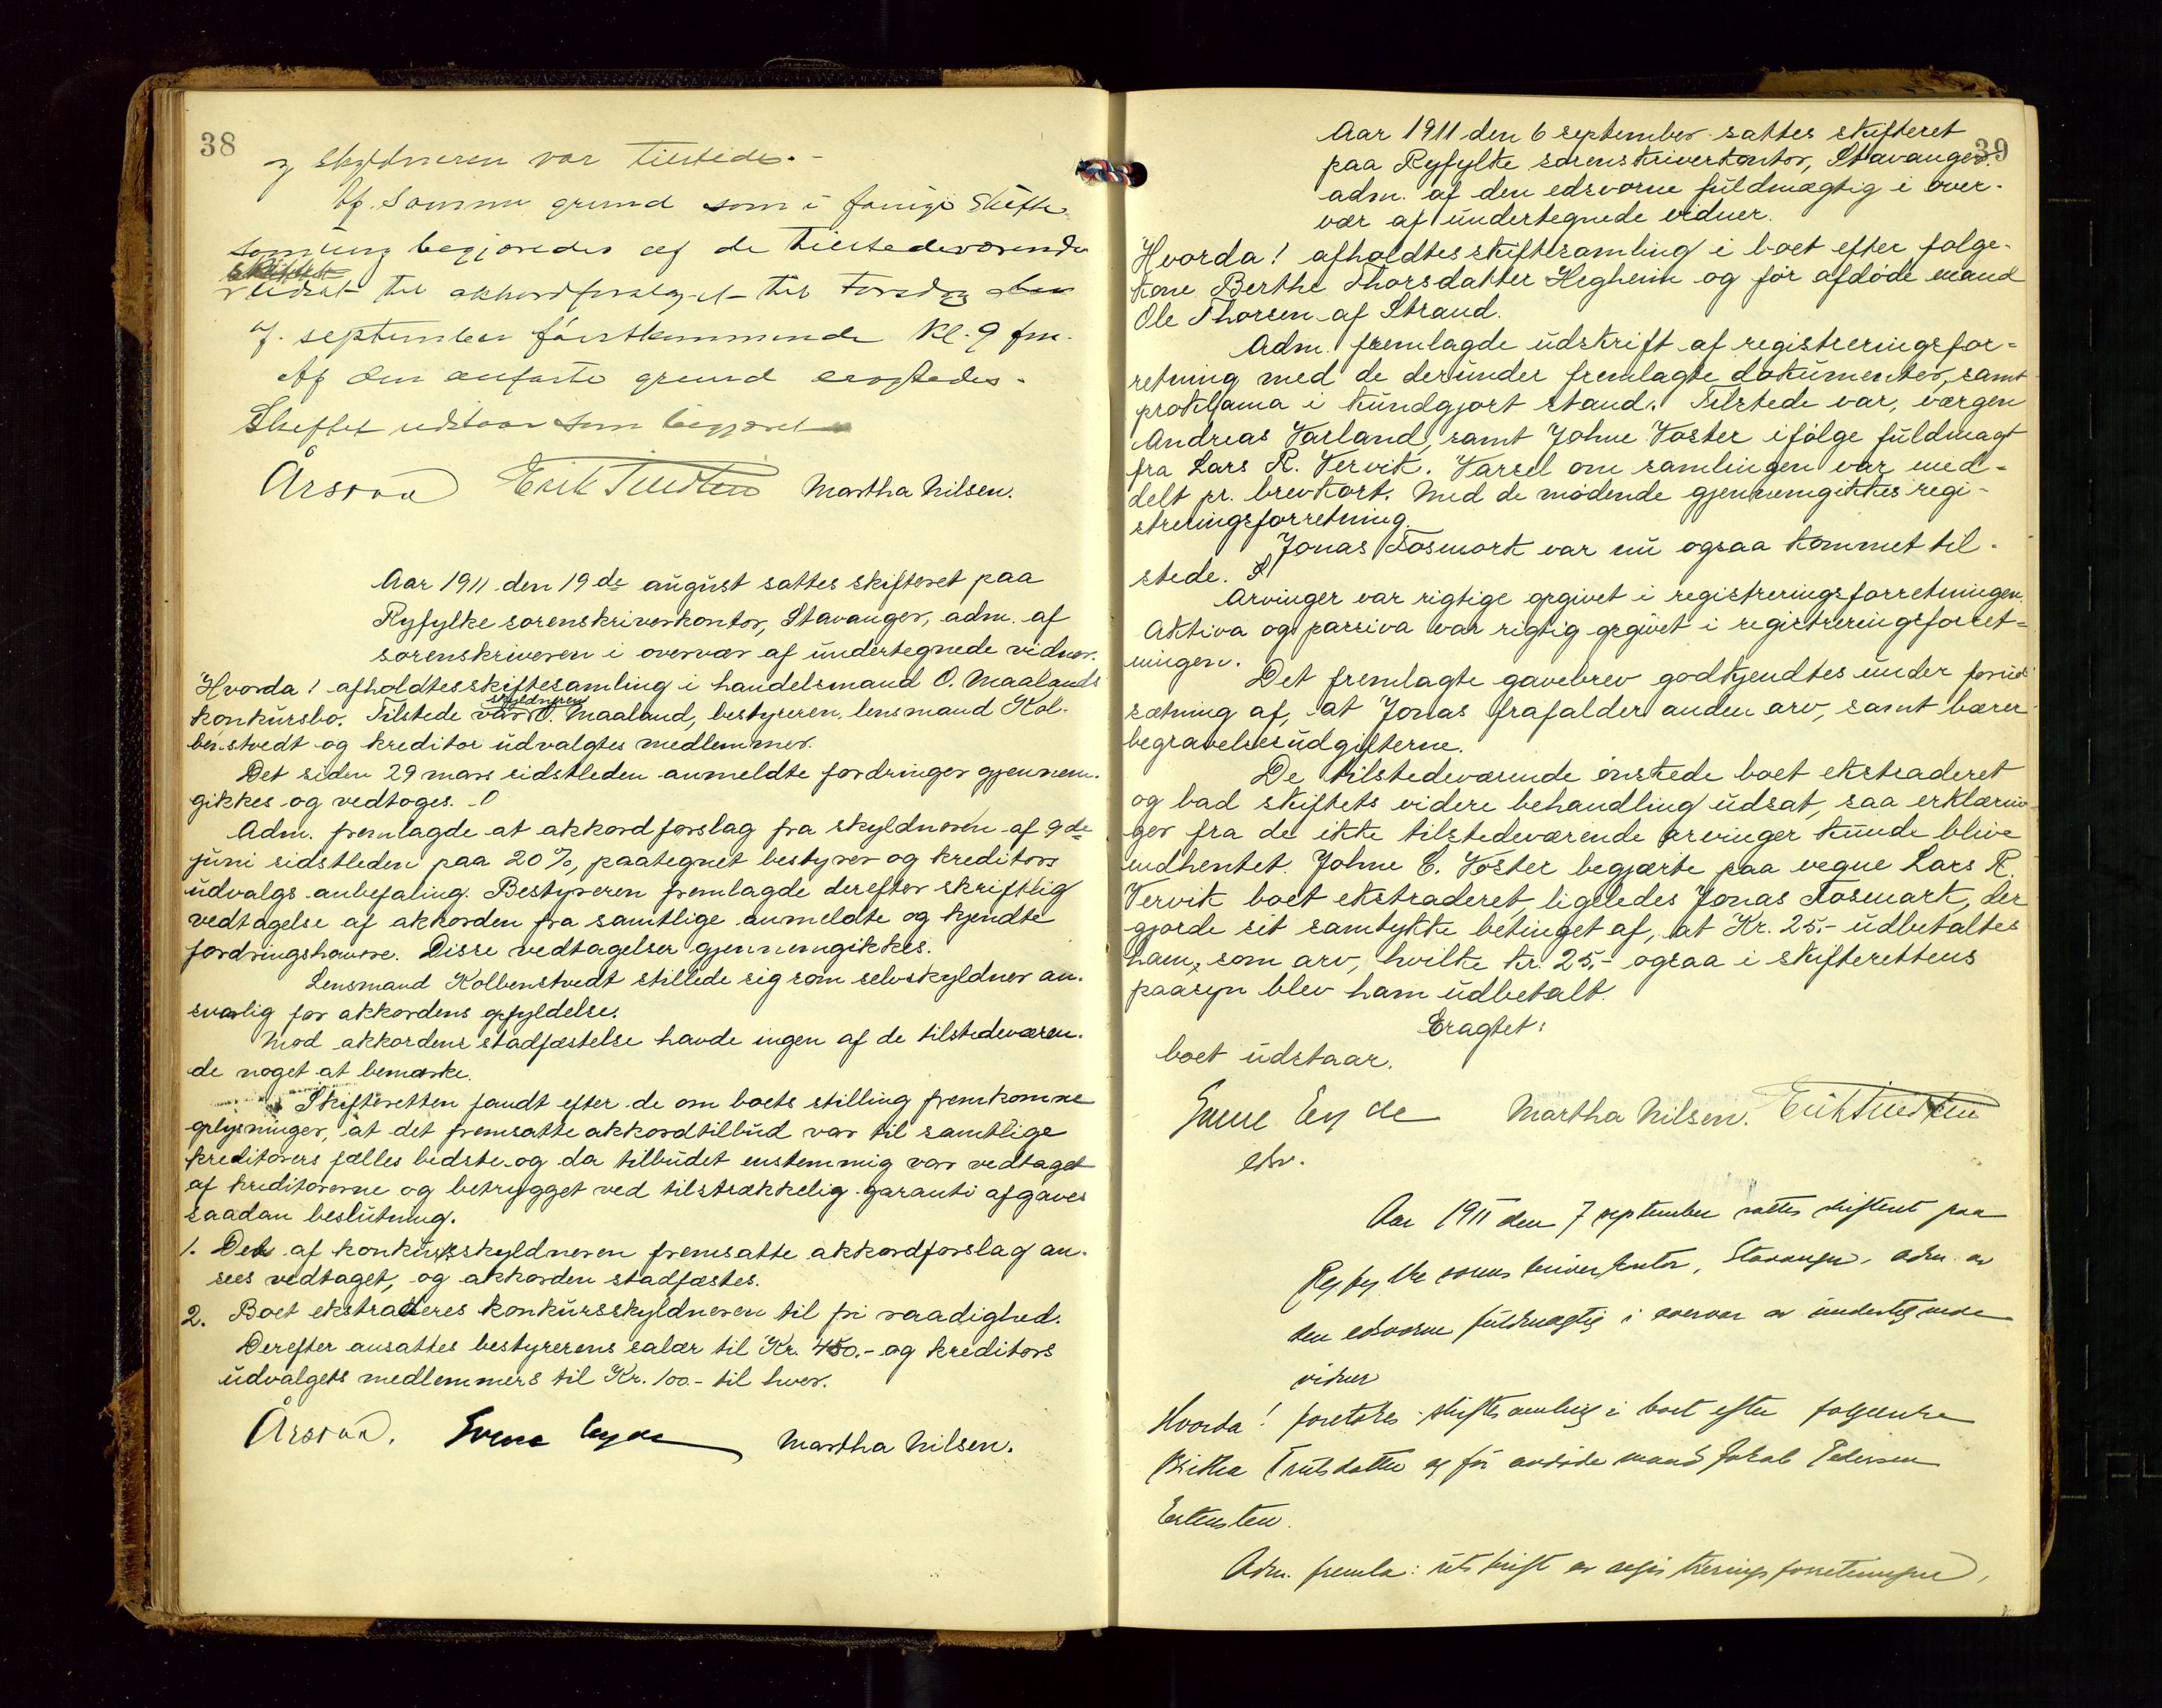 38
og skyldneren var tilstede.-
Af samme grund som i forrige skifte
samling begjæredes af de tilstedeværende
skiftet
udsat til akkordforslaget til Torsdag den
7. september førstkommende kl. 9 fm.
Af den anførte grund eragtedes.
Skiftet udstaar som begjæret
Årsvoll Erik Tuedten Martha Nilsen.
Aar 1911 den 19de august sattes skifteret paa
Ryfylke sorenskriverkontor, Stavanger, adm. af
sorenskriveren i overvær af undertegnede vidner.
Hvorda! afholdtes skiftesamling i handelsmand O. Maalands
skyldneren
konkursbo. Tilstede var O. Maaland, bestyreren, lensmand Kol-
benstvedt og kreditor udvalgtes medlemmer.
Det siden 29 mars sidstleden anmeldte fordringer gjennem-
gikkes og vedtoges.
Adm. fremlagde at akkordforslag fra skyldneren af 9de
juni sidstleden paa 20%, paategnet bestyrer og kreditors
udvalgs anbefaling. Bestyreren fremlagde derefter skriftlig
vedtagelse af akkorden fra samtlige anmeldte og kjendte
fordringshavere. Disse vedtagelser gjennemgikkes.
Lensmand Kolbenstvedt stillede sig som selvskyldner an-
svarlig for akkordens opfyldelse.
Mod akkordens stadfæstelse havde ingen af de tilstedeværen-
de noget at bemærke.
Skifteretten fandt efter de om boets stilling fremkomne
oplysninger, at det fremsatte akkordtilbud var til samtlige
kreditorers fælles bedste og da tilbudet enstemmig var vedtaget
af kreditorerne og betrygget ved tilstrækkelig garanti afgaves
saadan beslutning.
1. Det af konkursskyldneren fremsatte akkordforslag an-
sees vedtaget, og akkorden stadfæstes.
2. Boet ekstraderes konkursskyldneren til fri raadighed.
Derefter ansattes bestyrerens salær til Kr. 450.- og kreditors
udvalgets medlemmers til Kr. 100.- til hver.
Årsvoll. Svene Eyde Martha Nilsen.
39
Aar 1911 den 6 september sattes skifteret
paa Ryfylke sorenskriverkontor, Stavanger.
adm. af den edsvorne fuldmægtig i over-
vær af undertegnede vidner.
Hvorda! afholdtes skiftesamling i boet efter følge-
kone Berthe Thorsdatter Hegheim og før afdøde mand
Ole Thorsen af Strand.
Adm. fremlagde udskrift af registreringsfor-
retning med de derunder fremlagte dokumenter, samt
proklama i kundgjort stand. Tilstede var, værgen
Andreas Varland, samt Johne Voster ifølge fuldmagt
fra Lars R. Vervik. Varsel om samlingen var med-
delt pr. brevkort. Med de mødende gjennemgikkes regi-
streringsforretning.
Jonas Fosmork var nu ogsaa kommet til-
stede.
Arvinger var rigtige opgivet i registreringsforretningen.
Aktiva og passiva var rigtig opgivet i registreringsforret-
ningen.
Det fremlagte gavebrev godkjendtes under forud
sætning af, at Jonas frafalder anden arv, samt bærer
begravelsesudgifterne.
De tilstedeværende ønskede boet ekstraderet
og bad skiftets videre behandling udsat, saa erklærin-
ger fra de ikke tilstedeværende arvinger kunde blive
indhentet. Johne C. Voster begjærte paa vegne Lars R.
Vervik boet ekstraderet, ligeledes Jonas Fosmark, der
gjorde sit samtykke betinget af, at Kr. 25,- udbetaltes
ham, som arv, hvilke kr. 25,- ogsaa i skifterettens
paasyn blev ham udbetalt.
Eragtet:
boet udstaar.
Svene Eyde Martha Nilsen. Erik Tuedten
edsv.
Aar 1911 den 7 september sattes skifteret paa
Ryfylke sorenskriverkontor, Stavanger, adm. av
den edsvorne fuldmægtig i overvær av undertegnede
vidner
Hvorda! foretokes skiftesamling i boet efter følgekone
Birthea Trulsdatter og før avdøde mand Jakob Pedersen
Ertensten.
Adm. fremla: utskrift av registreringsforretningen,